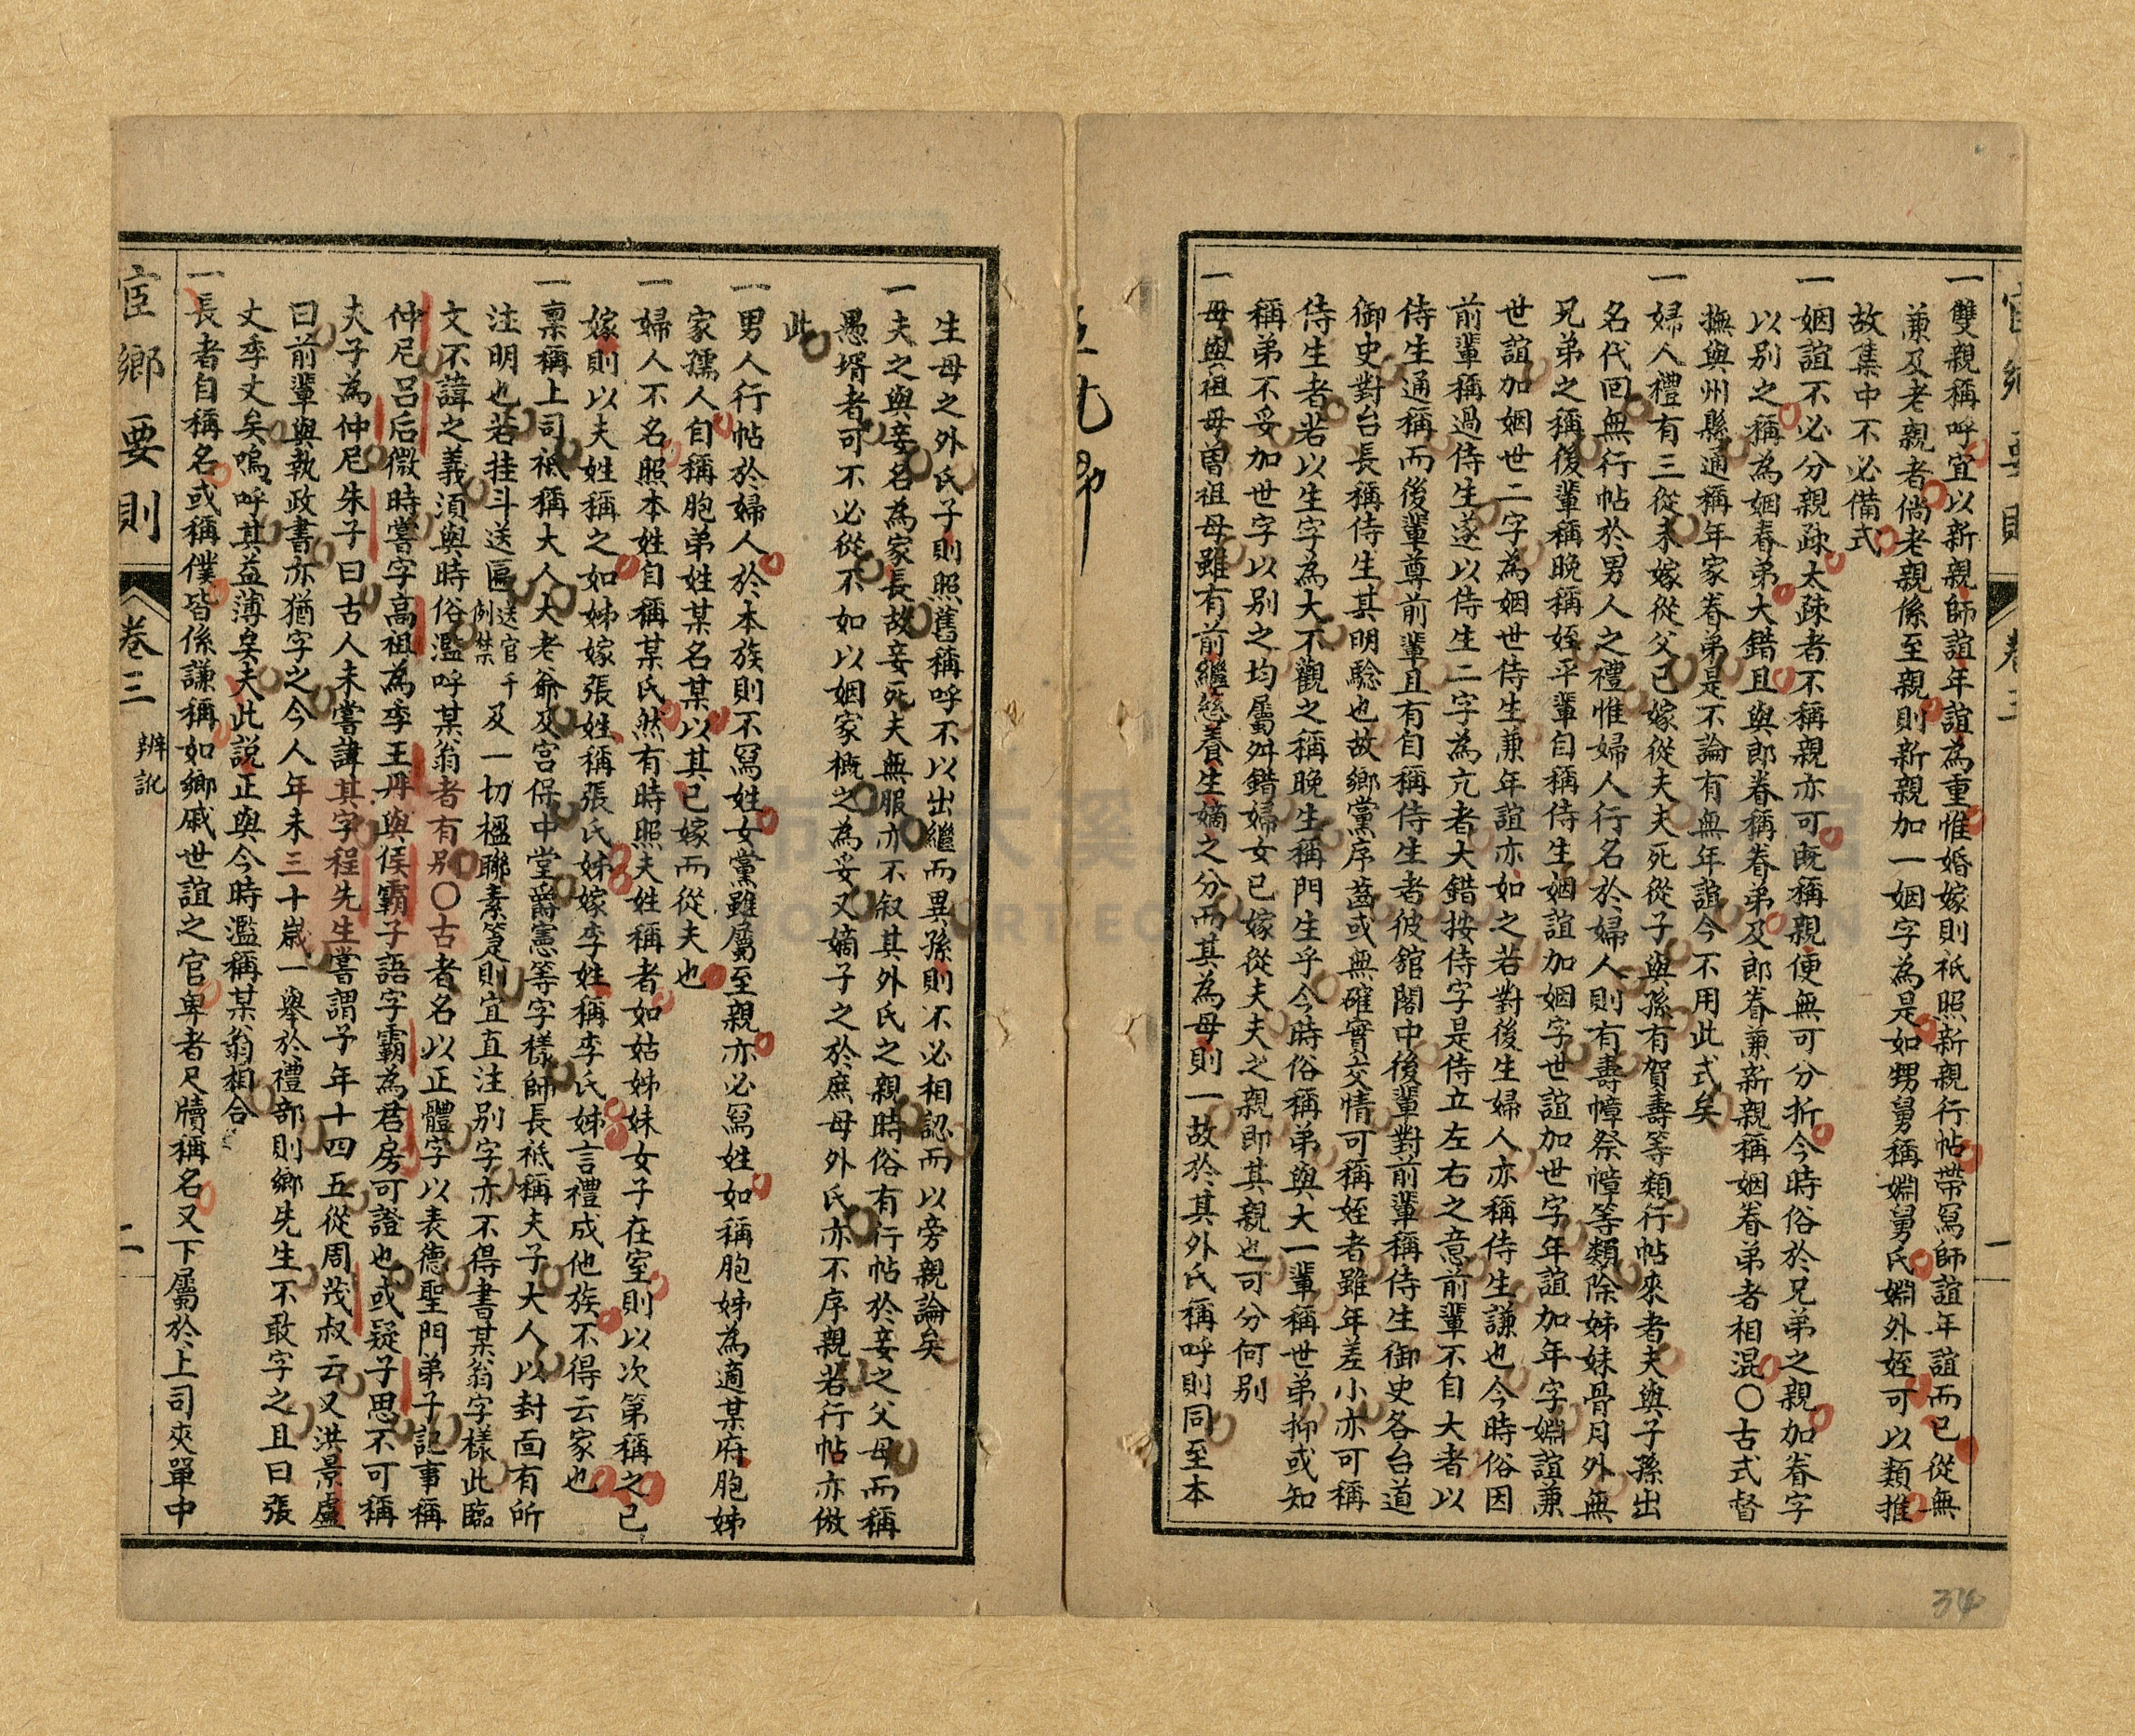 一雙親稱呼宜以新親師誼年誼為重惟婚嫁則祇照新親行帖帶寫師誼年誼而已從無
兼及老親者倘老親係至親則新親加一姻字為是如甥舅稱婣舅氏婣外姪可以類推
故集中不必備式
一姻誼不必分親疎太疎者不稱親亦可既稱親便無可分折今時俗於兄弟之親加眷字
以別之稱為姻眷弟大錯且與郎眷稱眷弟及郎眷兼新親稱姻眷弟者相混〇古式督
撫與州縣通稱年家眷弟是不論有無年誼今不用此式矣
一婦人禮有三從未嫁從父已嫁從夫夫死從子與孫有賀壽等類行帖來者夫與子孫出
名代回無行帖於男人之禮惟婦人行名於婦人則有壽幛祭幛等類除姊妹骨月外無
兄弟之稱後輩稱晚稱姪平輩自稱侍生姻誼加姻字世誼加世字年誼加年字婣誼兼
世誼加姻世二字為姻世侍生兼年誼亦如之若對後生婦人亦稱侍生謙也今時俗因
前輩稱過侍生遂以侍生二字為亢者大錯按侍字是侍立左右之意前輩不自大者以
侍生通稱而後輩尊前輩且有自稱侍生者彼舘閣中後輩對前輩稱侍生御史各台道
御史對台長稱侍生其明驗也故鄉黨序齒或無確實交情可稱姪者雖年差小亦可稱
侍生者若以生字為大不觀之稱晚生稱門生乎今時俗稱弟與大一輩稱世弟抑或知
稱弟不妥加世字以別之均屬舛錯婦女已嫁從夫夫之親即其親也可分何別
一母與祖母曾祖母雖有前繼慈養生嫡之分而其為母則一故於其外氏稱呼則同至本
官鄉要則
卷三
一
34
生母之外氏子則照舊稱呼不以出繼而異孫則不必相認而以旁親論矣
一夫之與妾名為家長故妾死夫無服亦不叙其外氏之親時俗有行帖於妾之父母而稱
愚壻者可不必從不如以姻家概之為妥又嫡子之於庶母外氏亦不序親若行帖亦倣
此
一男人行帖於婦人於本族則不寫姓女黨雖屬至親亦必寫姓如稱胞姊為適某府胞姊
家孺人自稱胞弟姓某名某以其已嫁而從夫也
一婦人不名照本姓自稱某氏然有時照夫姓稱者如姑姊妹女子在室則以次第稱之已
嫁則以夫姓稱之如姊嫁張姓稱張氏姊嫁李姓稱李氏姊言禮成他族不得云家也
一稟稱上司祇稱大人大老爺及宮保中堂爵憲等字樣師長祇稱夫子大人以封面有所
注明也若挂斗送匾送官千例禁及一切楹聯素箋則宜直注別字亦不得書某翁字樣此臨
文不諱之義須與時俗濫呼某翁者有別〇古者名以正體字以表德聖門弟子記事稱
仲尼呂后微時嘗字高祖為季王丹與侯霸子語字霸為君房可證也或疑子思不可稱
夫子為仲尼朱子曰古人未嘗諱其字程先生嘗謂予年十四五從周茂叔云又洪景盧
曰前輩與執政書亦猶字之今人年未三十歲一舉於禮部則鄉先生不敢字之且曰張
丈李丈矣嗚呼其益薄矣夫此説正與今時濫稱某翁相合
一長者自稱名或稱僕皆係謙稱如鄉戚世誼之官卑者尺牘稱名又下屬於上司夾單中
宦鄉要則
卷三
辨訛
二